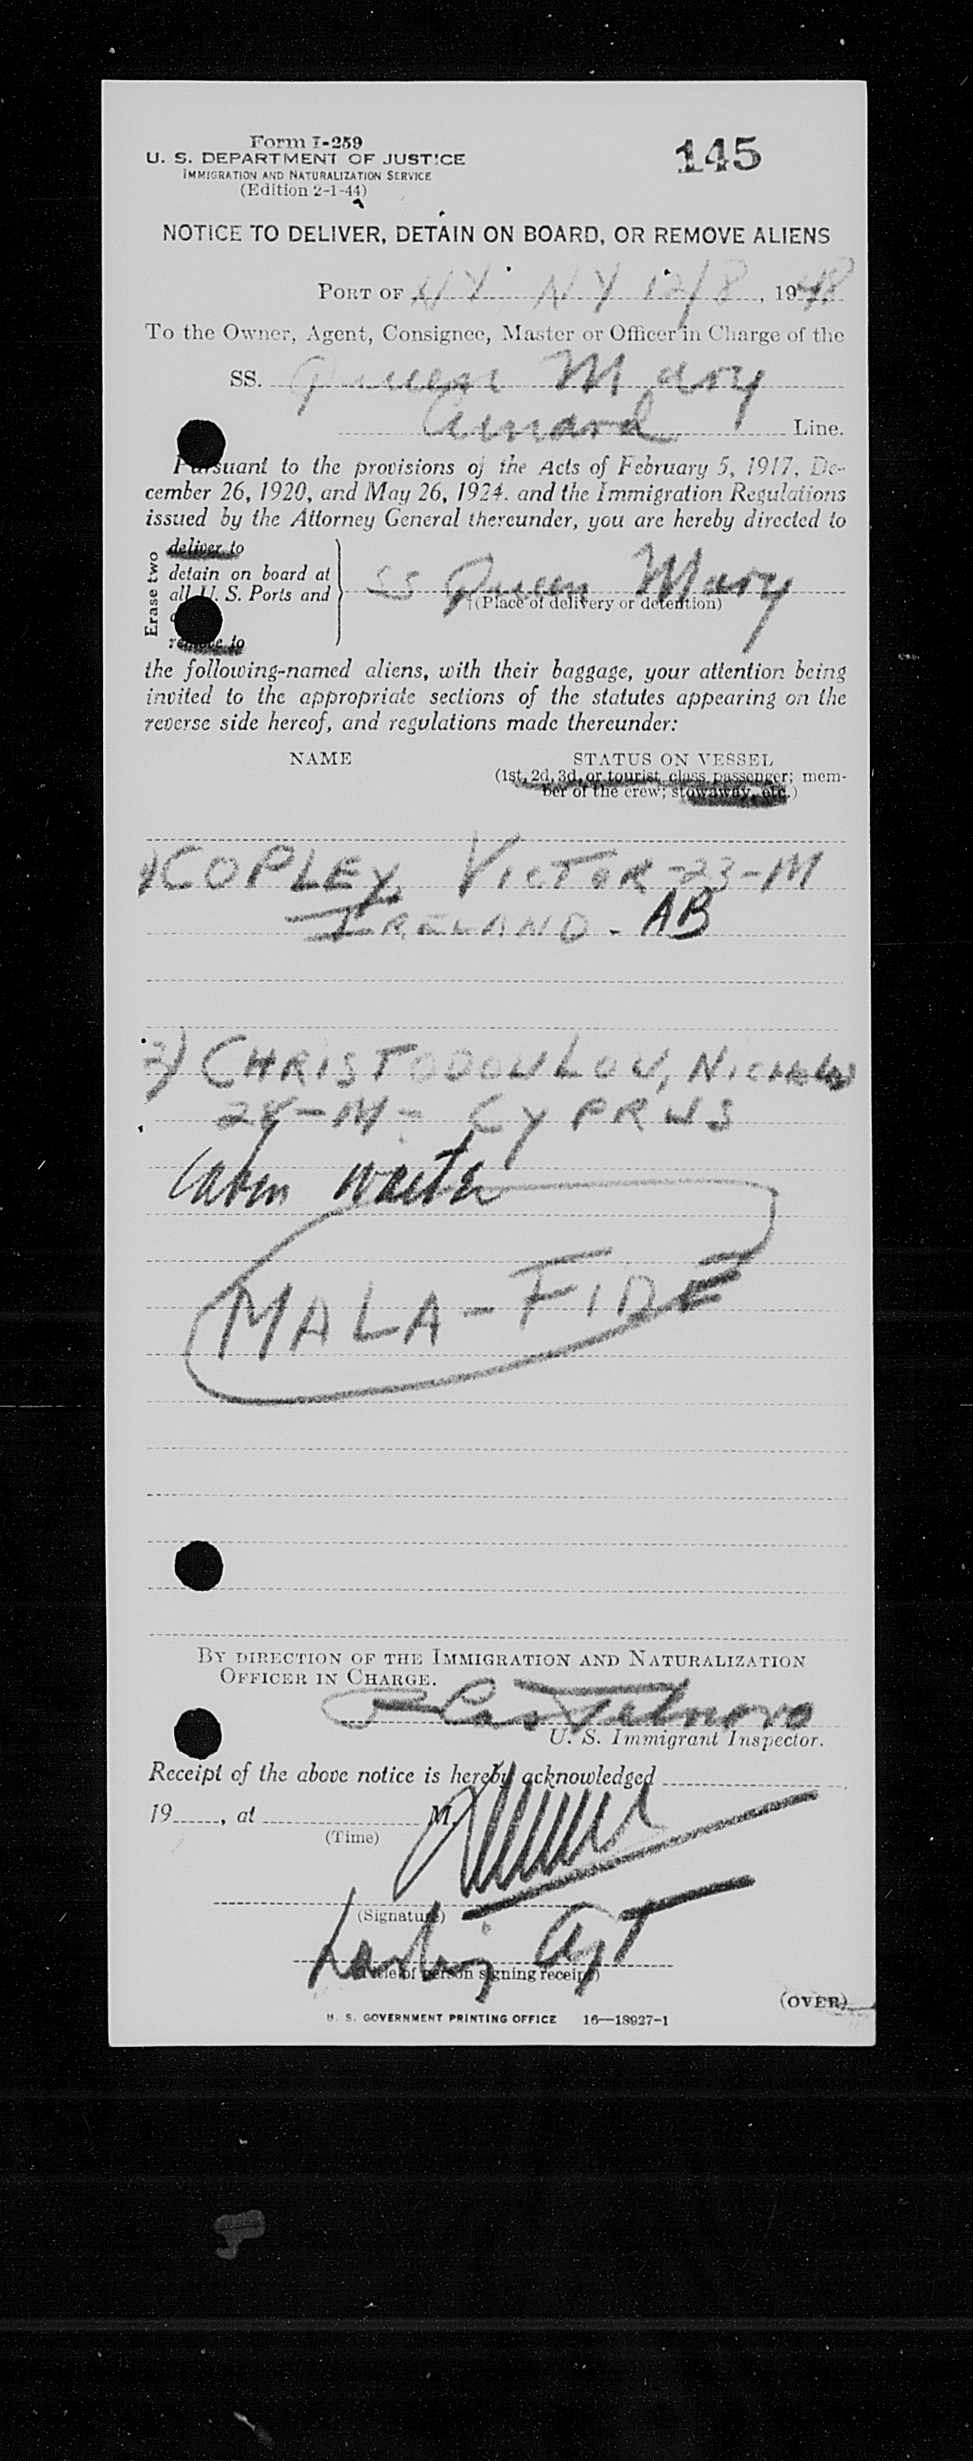 Form I-259
145
U. S. DEPARTMENT OF JUSTICE
IMMIGRATION AND NATURALIZATION SERVICE
(Edition 2-1-44)
NOTICE TO DELIVER, DETAIN ON BOARD, OR REMOVE ALIENS
PORT OF NY NY 12/8, 1948
To the Owner, Agent, Consignee, Master or Officer in Charge of the
SS. Queen Mary
Cunard Line.
Pursuant to the provisions of the Acts of February 5, 1917, De-
cember 26, 1920, and May 26, 1924. and the Immigration Regulations
issued by the Attorney General thereunder, you are hereby directed to
Erase two
deliver to
detain on board at
all U. S. Ports and
remove to
SS Queen Mary
(Place of delivery or detention)
the following-named aliens, with their baggage, your attention being
invited to the appropriate sections of the statutes appearing on the
reverse side hereof, and regulations made thereunder:
NAME STATUS ON VESSEL
(1st, 2d, 3d, or tourist class passenger; mem-
ber of the crew; stowaway, etc.)
1) COPLEY, VICTOR-23-M
IRELAND - AB
2) CHRISTODOULOU, NICHOLAS
28-M- CYPRUS
Cabin waiter
MALA-FIDE
BY DIRECTION OF THE IMMIGRATION AND NATURALIZATION
OFFICER IN CHARGE.
Castelnovo
U. S. Immigrant Inspector.
Receipt of the above notice is hereby acknowledged
19, at M.
(Time)
(Signature)
Agt
(Title of person signing receipt)
(OVER)
U. S. GOVERNMENT PRINTING OFFICE 16—18927-1